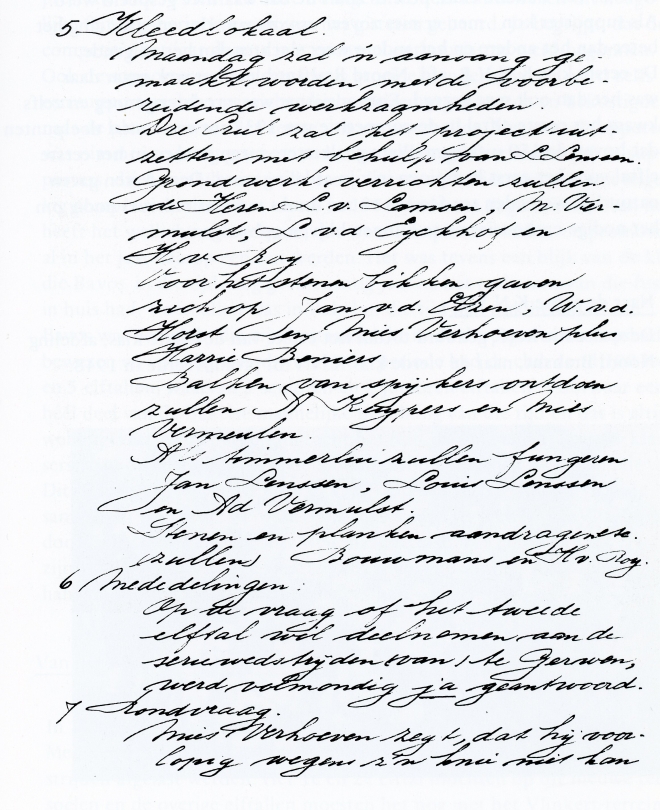 5. Kleedlokaal.
Maandag zal 'n aanvang ge-
maakt worden met de voorbe-
reidende werkzaamheden.
Dré Crul zal het project uit-
zetten met behulp van L. Lenssen.
Grondwerk verrichten zullen
de Heren L. v. Lamoen, M. Ver-
mulst, L. v.d. Eyckhof en
H. v. Rooy
Voor het stenen bikken gaven
zich op Jan v.d. Elzen, W. v.d.
Horst Sen, Mies Verhoeven plus
Harrie Beniers.
Balken van spijkers ontdoen
zullen A. Kuypers en Mies
Vermeulen.
Als timmerlui zullen fungeren
Jan Lenssen, Louis Lenssen
en Ad Vermulst.
Stenen en planken aandragen etc.
(zullen) Bouwmans en H. v. Roy.
6 Mededelingen:
Op de vraag of het tweede
elftal wil deelnemen aan de
seriewedstrijden (van) te Gerwen,
werd volmondig ja geantwoord.
7 Rondvraag.
Mies Verhoeven zegt, dat hij voor-
lopig wegens z'n knie niet kan